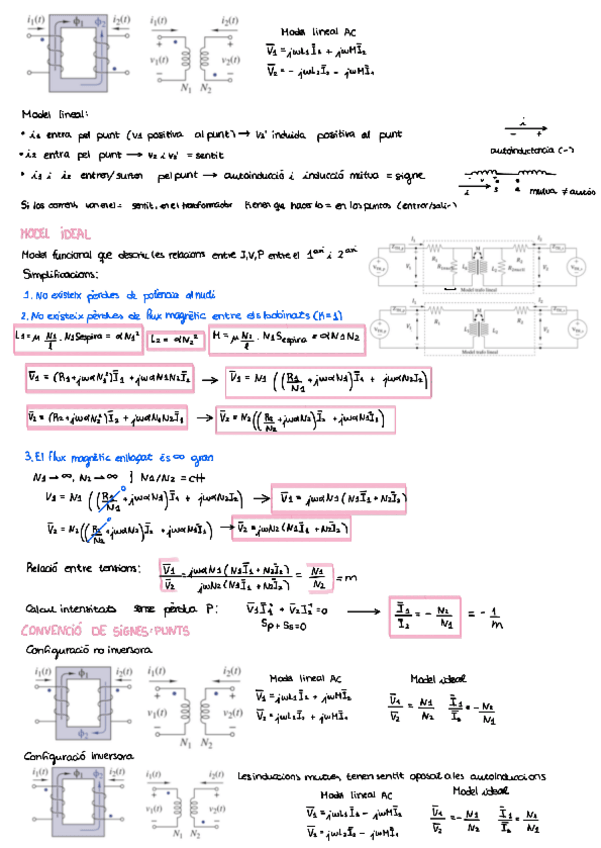 i₁(t) ϕ₁ ϕ₂ i₂(t) i₁(t) i₂(t)
v₁(t) v₂(t)
N₁ N₂
Model lineal AC
V̄₁ = jωL₁Ī₁ + jωMĪ₂
V̄₂ = - jωL₂Ī₂ - jωMĪ₁
Model lineal:
• i₁ entra pel punt (v₁ positiva al punt) → v₂' induida positiva al punt
• i₂ entra pel punt → v₂ i v₂' = sentit
• i₁ i i₂ entren/surten pel punt → autoinducció i inducció mútua = signe
i
- +
autoinductancia (-)
i
mutua ≠ autoind
Si los corrents van en el = sentit, en el transformador tienen que hacerlo = en los puntos (entrar/salir)
MODEL IDEAL
Model funcional que descriu les relacions entre I,V,P entre el 1ari i 2ari
Simplificacions:
1. No existeix pèrdues de potencia al nucli
2. No existeix pèrdues de flux magnètic entre els bobinats (K=1)
L₁ = μ N₁/l · N₁ Sespira = αN₁²
L₂ = αN₂²
M = μ N₂/l · N₁ Sespira = αN₁N₂
V̄₁ = (R₁+jωαN₁²)Ī₁ + jωαN₁N₂Ī₂ → V̄₁ = N₁ ((R₁/N₁ + jωαN₁)Ī₁ + jωαN₂Ī₂)
V̄₂ = (R₂+jωαN₂²)Ī₂ + jωαN₁N₂Ī₁ → V̄₂ = N₂((R₂/N₂ + jωαN₂)Ī₂ + jωαN₁Ī₁)
Model trafo lineal
Model trafo lineal
3. El flux magnètic enllaçat és ∞ gran
N₁ → ∞, N₂ → ∞ } N₁/N₂ = ctt
V₁ = N₁ ((R₁/N₁ + jωαN₁)Ī₁ + jωαN₂Ī₂) → V̄₁ = jωαN₁(N₁Ī₁+N₂Ī₂)
0
V̄₂ = N₂((R₂/N₂ + jωαN₂)Ī₂ + jωαN₁Ī₁) → V̄₂ = jωN₂(N₁Ī₁ + N₂Ī₂)
0
Relació entre tensions: V̄₁/V̄₂ = jωαN₁(N₁Ī₁+N₂Ī₂) / jωN₂(N₁Ī₁+N₂Ī₂) = N₁/N₂ = m
Calcul intensitats sense pèrdua P: V̄₁Ī₁* + V̄₂Ī₂* = 0 → Ī₁/Ī₂ = - N₂/N₁ = - 1/m
Sp + Ss = 0
CONVENCIÓ DE SIGNES: PUNTS
Configuració no inversora
i₁(t) ϕ₁ i₂(t) i₁(t) i₂(t)
v₁(t) v₂(t)
N₁ N₂
Model lineal AC Model ideal
V̄₁ = jωL₁Ī₁ + jωMĪ₂
V̄₂ = jωL₂Ī₂ + jωMĪ₁
V̄₁/V̄₂ = N₁/N₂ Ī₁/Ī₂ = - N₂/N₁
Configuració inversora
i₁(t) ϕ₁ ϕ₂ i₂(t) i₁(t) i₂(t)
v₁(t) v₂(t)
N₁ N₂
Les induccions mutues tenen sentit oposat a les autoinduccions
Model lineal AC Model ideal
V̄₁ = jωL₁Ī₁ - jωMĪ₂
V̄₂ = jωL₂Ī₂ - jωMĪ₁
V̄₁/V̄₂ = - N₁/N₂ Ī₁/Ī₂ = N₂/N₁